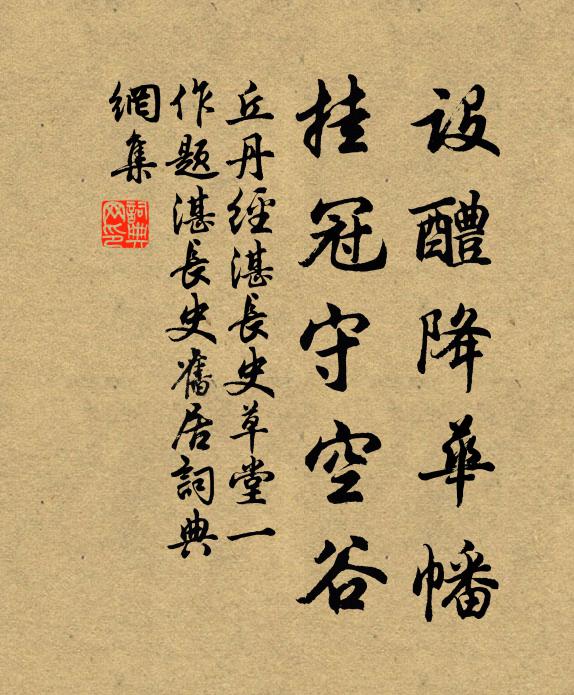 設醴降華幡
挂冠守空谷
丘丹經湛長史草堂一
作題湛長史舊居詞典
網集
詞典
网印